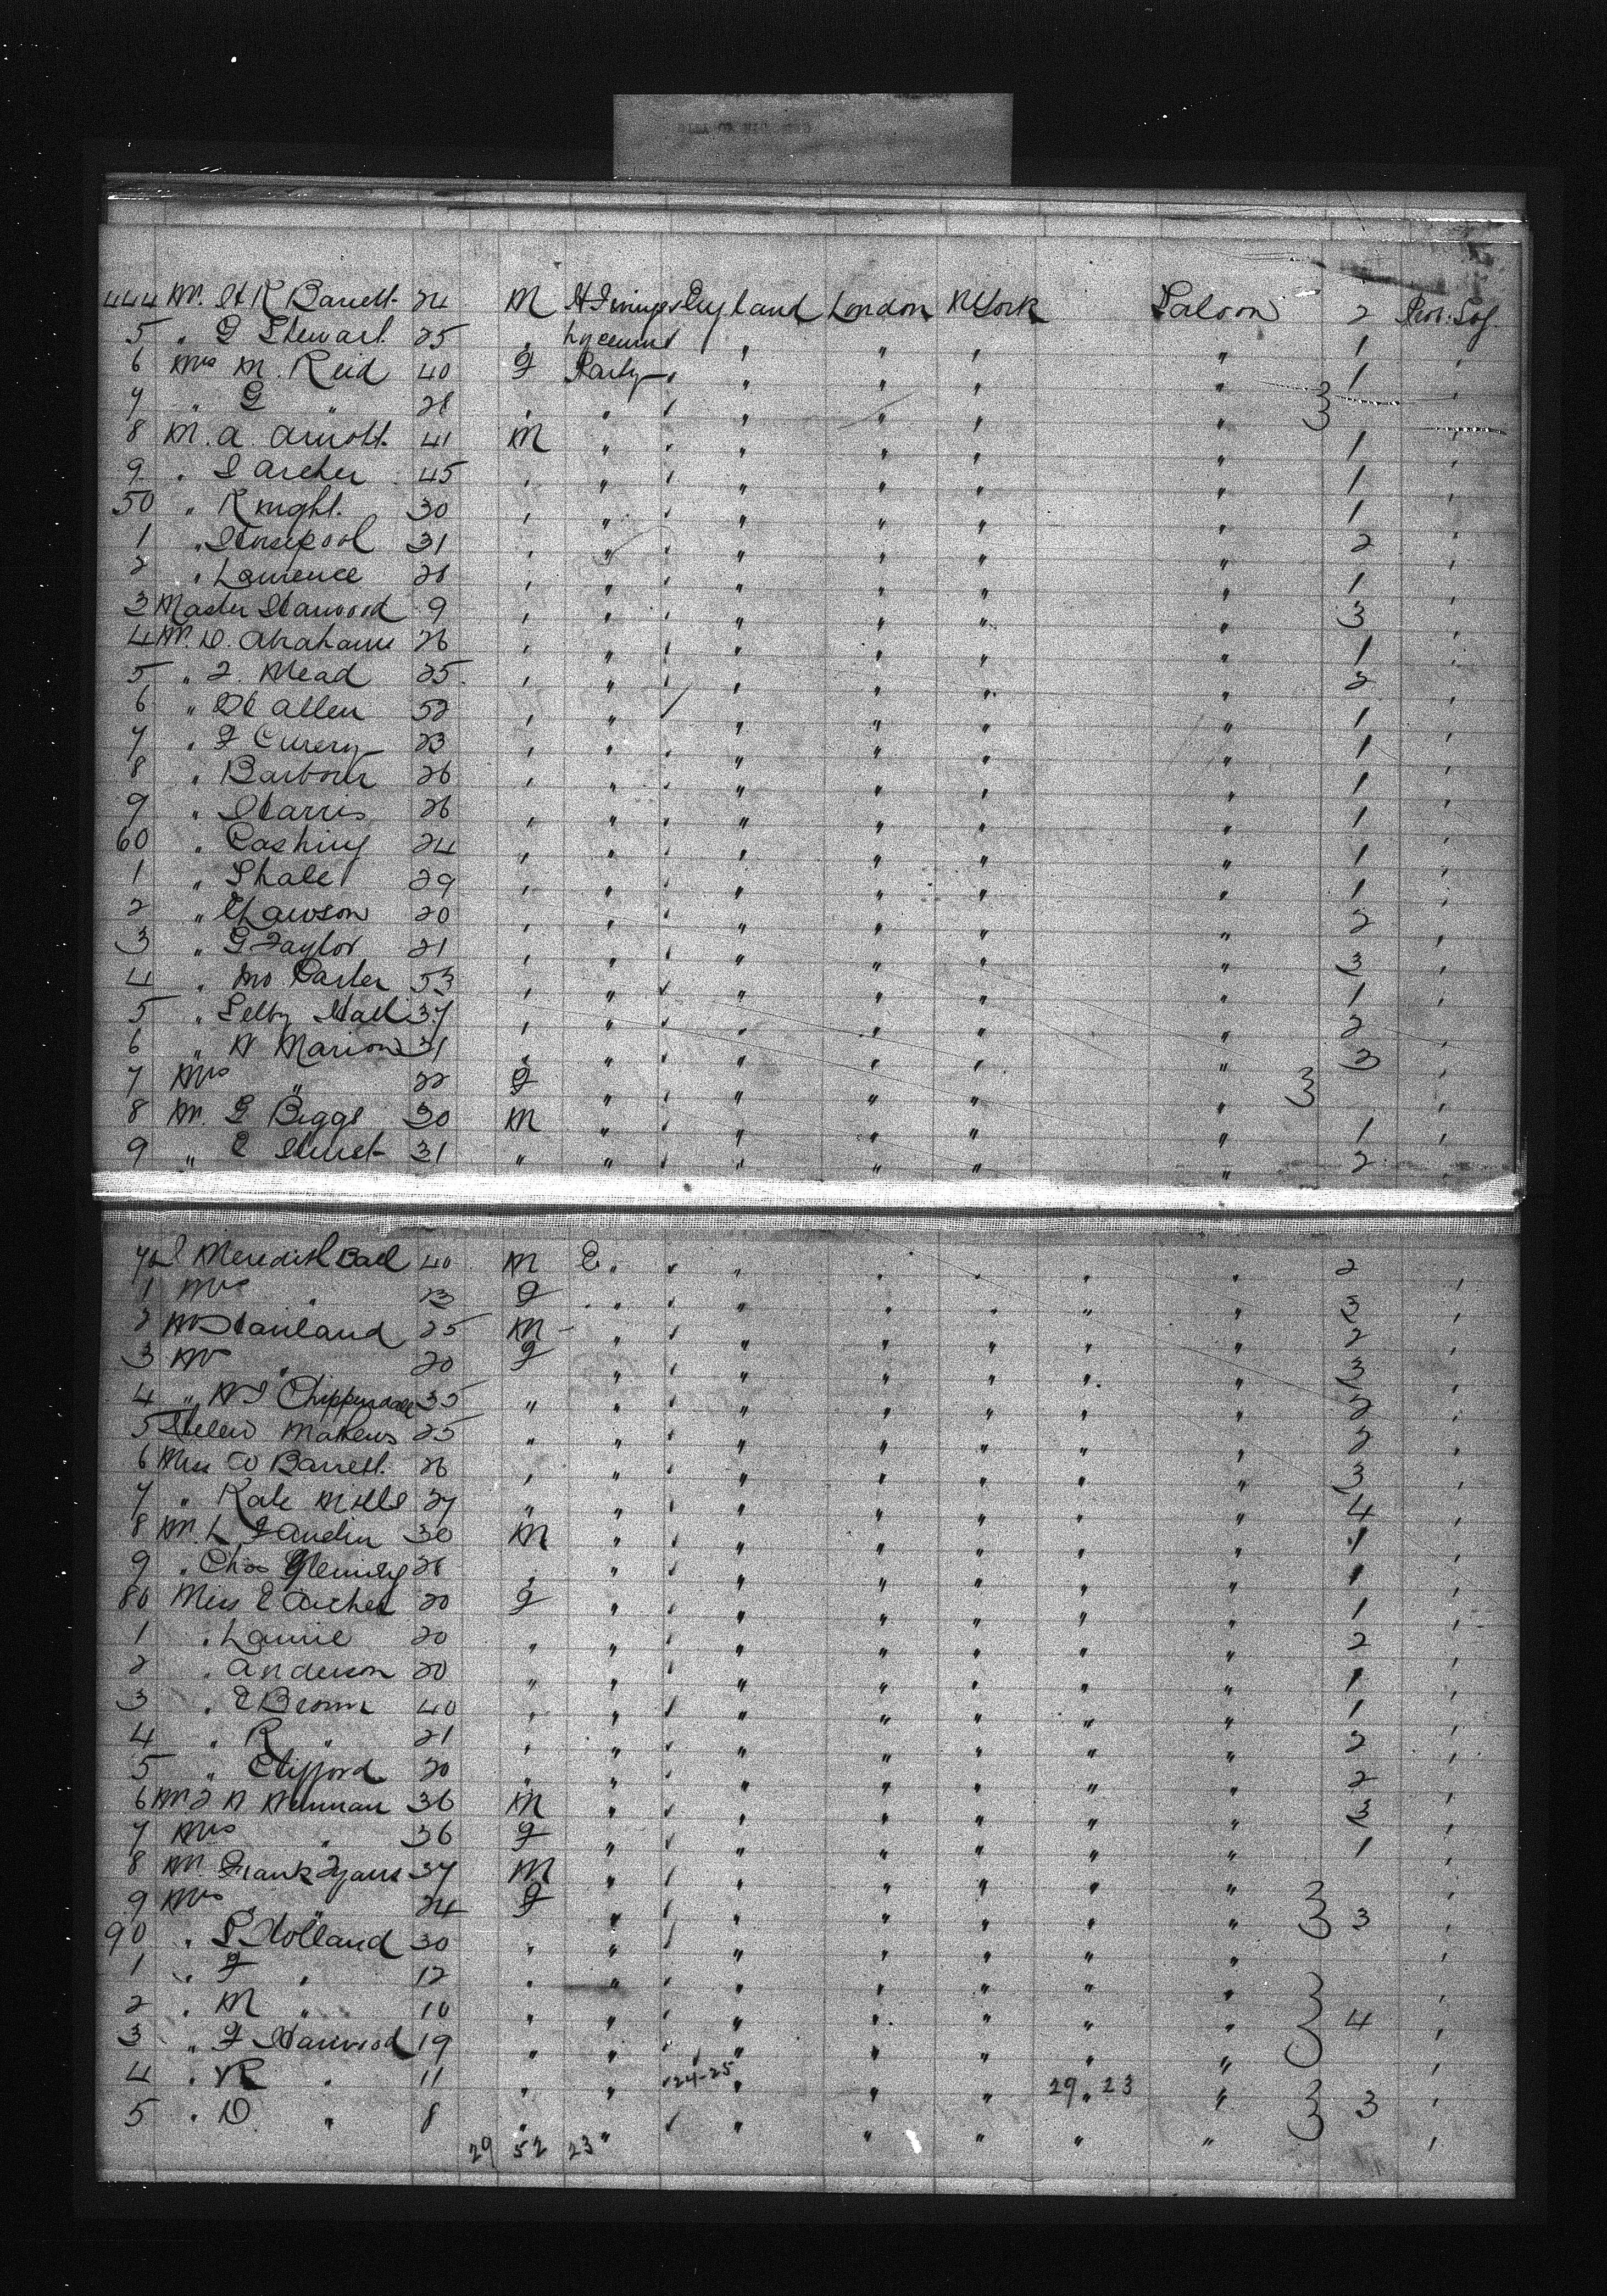 444 Mr. H R Barrett 24 M H Irvings England London N York Saloon 2 Prot. Soj.
5 " G Stewart 25 " Lyceum " " " " " 1 "
6 Mrs M. Reid 40 F Party " " " " " 1 "
7 " G " 28 " " " " " " " 3 "
8 M. A. Arnott 41 M " " " " " " 1 "
9 " J Archer 45 " " " " " " " 1 "
50 " Knight 30 " " " " " " " 1 "
1 " 31 " " " " " " " 2 "
2 " Laurence 28 " " " " " " " 1 "
3 Master Harwood 9 " " " " " " " 3 "
4 Mr. D. Abrahams 26 " " " " " " " 1 "
5 " J. Mead 25 " " " " " " " 2 "
6 " Allen 52 " " " " " " " 1 "
7 " F 23 " " " " " " " 1 "
8 " Barbour 26 " " " " " " " 1 "
9 " Harris 26 " " " " " " " 1 "
60 " Cashing 24 " " " " " " " 1 "
1 " 29 " " " " " " " 1 "
2 " Lawson 20 " " " " " " " 2 "
3 " G Taylor 21 " " " " " " " 3 "
4 " Carter 53 " " " " " " " 1 "
5 " Selby Hall 37 " " " " " " " 2 "
6 " W Marion 31 " " " " " " " 3 "
7 Mrs " 22 F " " " " " " 3 "
8 Mr. G Biggs 30 M " " " " " " 1 "
9 " E 31 " " " " " " " 2 "
70 J Meredith Ball 40 M E " " " " " " 2 "
1 Mrs " 23 F " " " " " " " 3 "
2 Mr Haviland 25 M " " " " " " " 2 "
3 Mrs " 20 F " " " " " " " 3 "
4 " Chippendale 35 " " " " " " " " 2 "
5 Helen Mathews 25 " " " " " " " " 2 "
6 Miss W Barrett 26 " " " " " " " " 3 "
7 " Kate Mills 27 " " " " " " " " 4 "
8 Mr. L 30 M " " " " " " " 1 "
9 " Chas Glenney 28 " " " " " " " " 1 "
80 Miss E Archer 20 F " " " " " " " 1 "
1 " Laurie 20 " " " " " " " " 2 "
2 " Anderson 20 " " " " " " " " 1 "
3 " E Brown 40 " " " " " " " " 1 "
4 " R " 21 " " " " " " " " 2 "
5 " Clifford 20 " " " " " " " " 2 "
6 Mr 36 M " " " " " " " 3 "
7 Mrs " 36 F " " " " " " " 1 "
8 Mr Frank Tyars 37 M " " " " " " " "
9 Mrs " 24 F " " " " " " " 3 "
90 " Holland 30 " " " " " " " " "
1 " F " 12 " " " " " " " " "
2 " M " 10 " " " " " " " " 4 "
3 " F Harwood 19 " " " " " " " " "
4 " R " 11 " " " 24-25 " " " 29 " 23 " 3 "
5 " D " 8 " " " " " " " " "
29 52 23